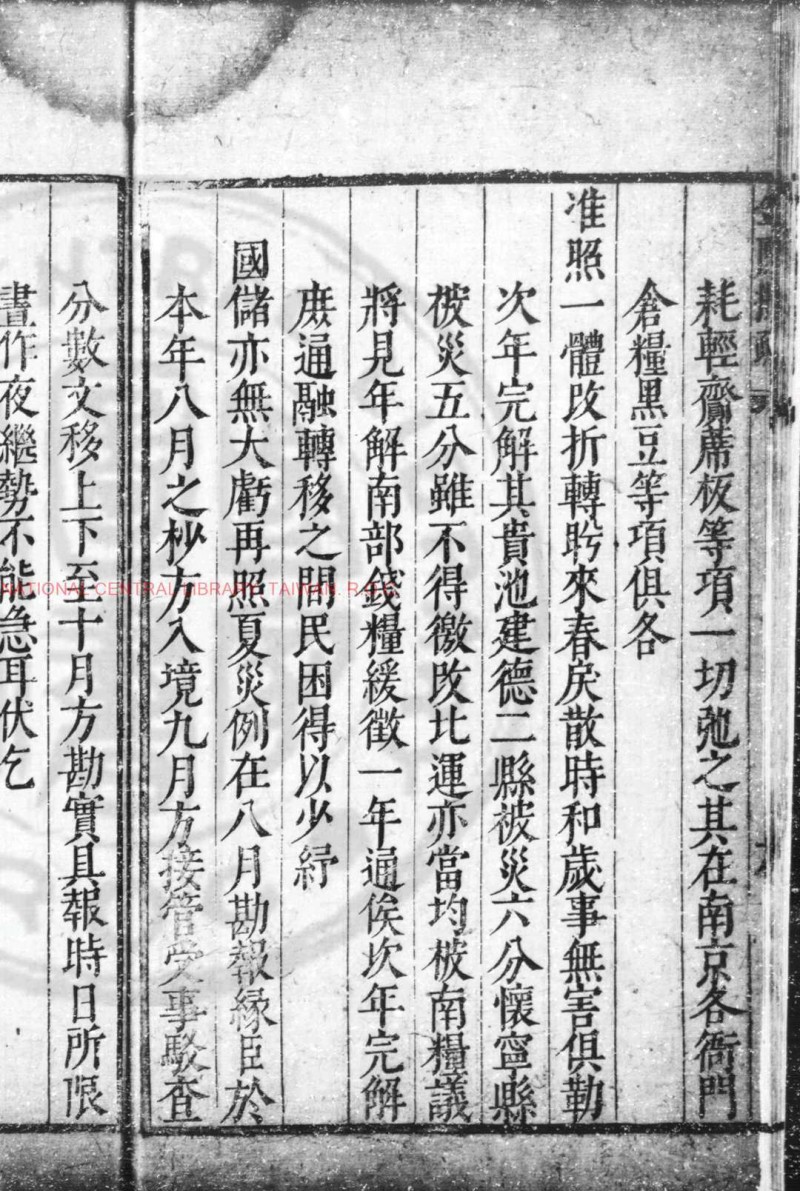 耗輕齎蓆板等項一切弛之其在南京各衙門
倉糧黑豆等項俱各
准照一體改折轉盻來春疾散時和歲事無害俱勒
次年完解其貴池建德二縣被災六分懷寧縣
被災五分雖不得徼改北運亦當均被南糧議
將見年解南部錢糧緩徵一年通俟次年完解
庶通融轉移之間民困得以少紓
國儲亦無大虧再照夏災例在八月勘報緣臣於
本年八月之杪方入境九月方接管受事駁查
分數文移上下至十月方勘實具報時日所限
晝作夜繼勢不能急耳伏乞
NATIONAL CENTRAL LIBRARY, TAIWAN. R.O.C.